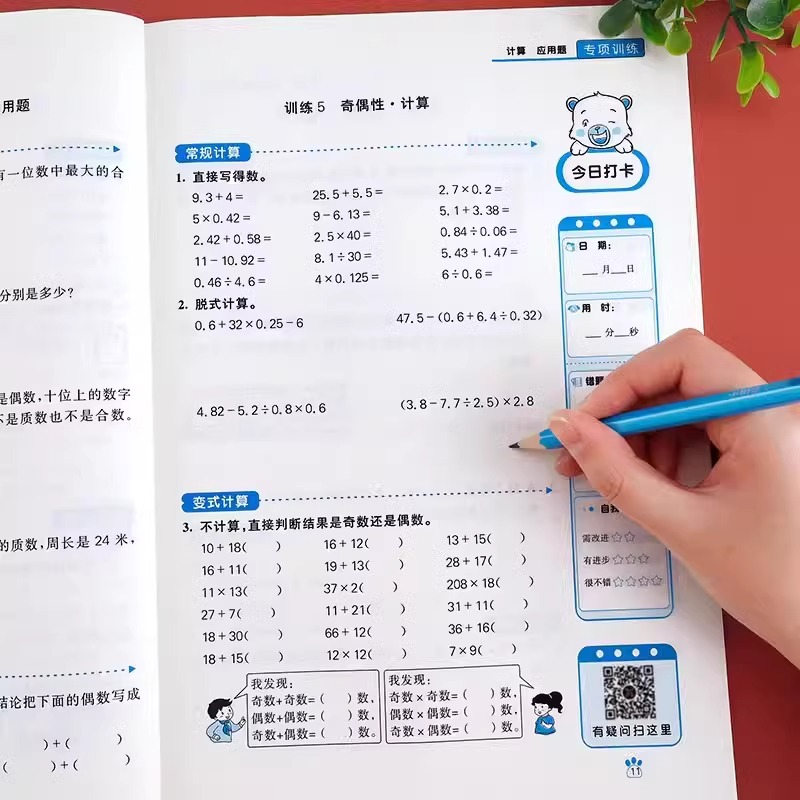 用题
有一位数中最大的合
分别是多少?
是偶数,十位上的数字
不是质数也不是合数。
的质数,周长是 24 米,
结论把下面的偶数写成
)+( )
( )+( )
计算 应用题 专项训练
训练 5 奇偶性·计算
常规计算
1. 直接写得数。
9.3+4= 25.5+5.5= 2.7×0.2=
5×0.42= 9-6.13= 5.1+3.38=
2.42+0.58= 2.5×40= 0.84÷0.06=
11-10.92= 8.1÷30= 5.43+1.47=
0.46÷4.6= 4×0.125= 6÷0.6=
2. 脱式计算。
0.6+32×0.25-6 47.5-(0.6+6.4÷0.32)
4.82-5.2÷0.8×0.6 (3.8-7.7÷2.5)×2.8
变式计算
3. 不计算,直接判断结果是奇数还是偶数。
10+18( ) 16+12( ) 13+15( )
16+11( ) 19+13( ) 28+17( )
11×13( ) 37×2( ) 208×18( )
27+7( ) 11+21( ) 31+11( )
18+30( ) 66+12( ) 36+16( )
18+15( ) 12×12( ) 7×9( )
我发现:
奇数+奇数=( )数,
偶数+偶数=( )数,
奇数+偶数=( )数。
我发现:
奇数×奇数=( )数,
偶数×偶数=( )数,
奇数×偶数=( )数。
今日打卡
日 期:
月 日
用 时:
分 秒
错题
自我
需改进☆☆
有进步☆☆☆
很不错☆☆☆☆
有疑问扫这里
11